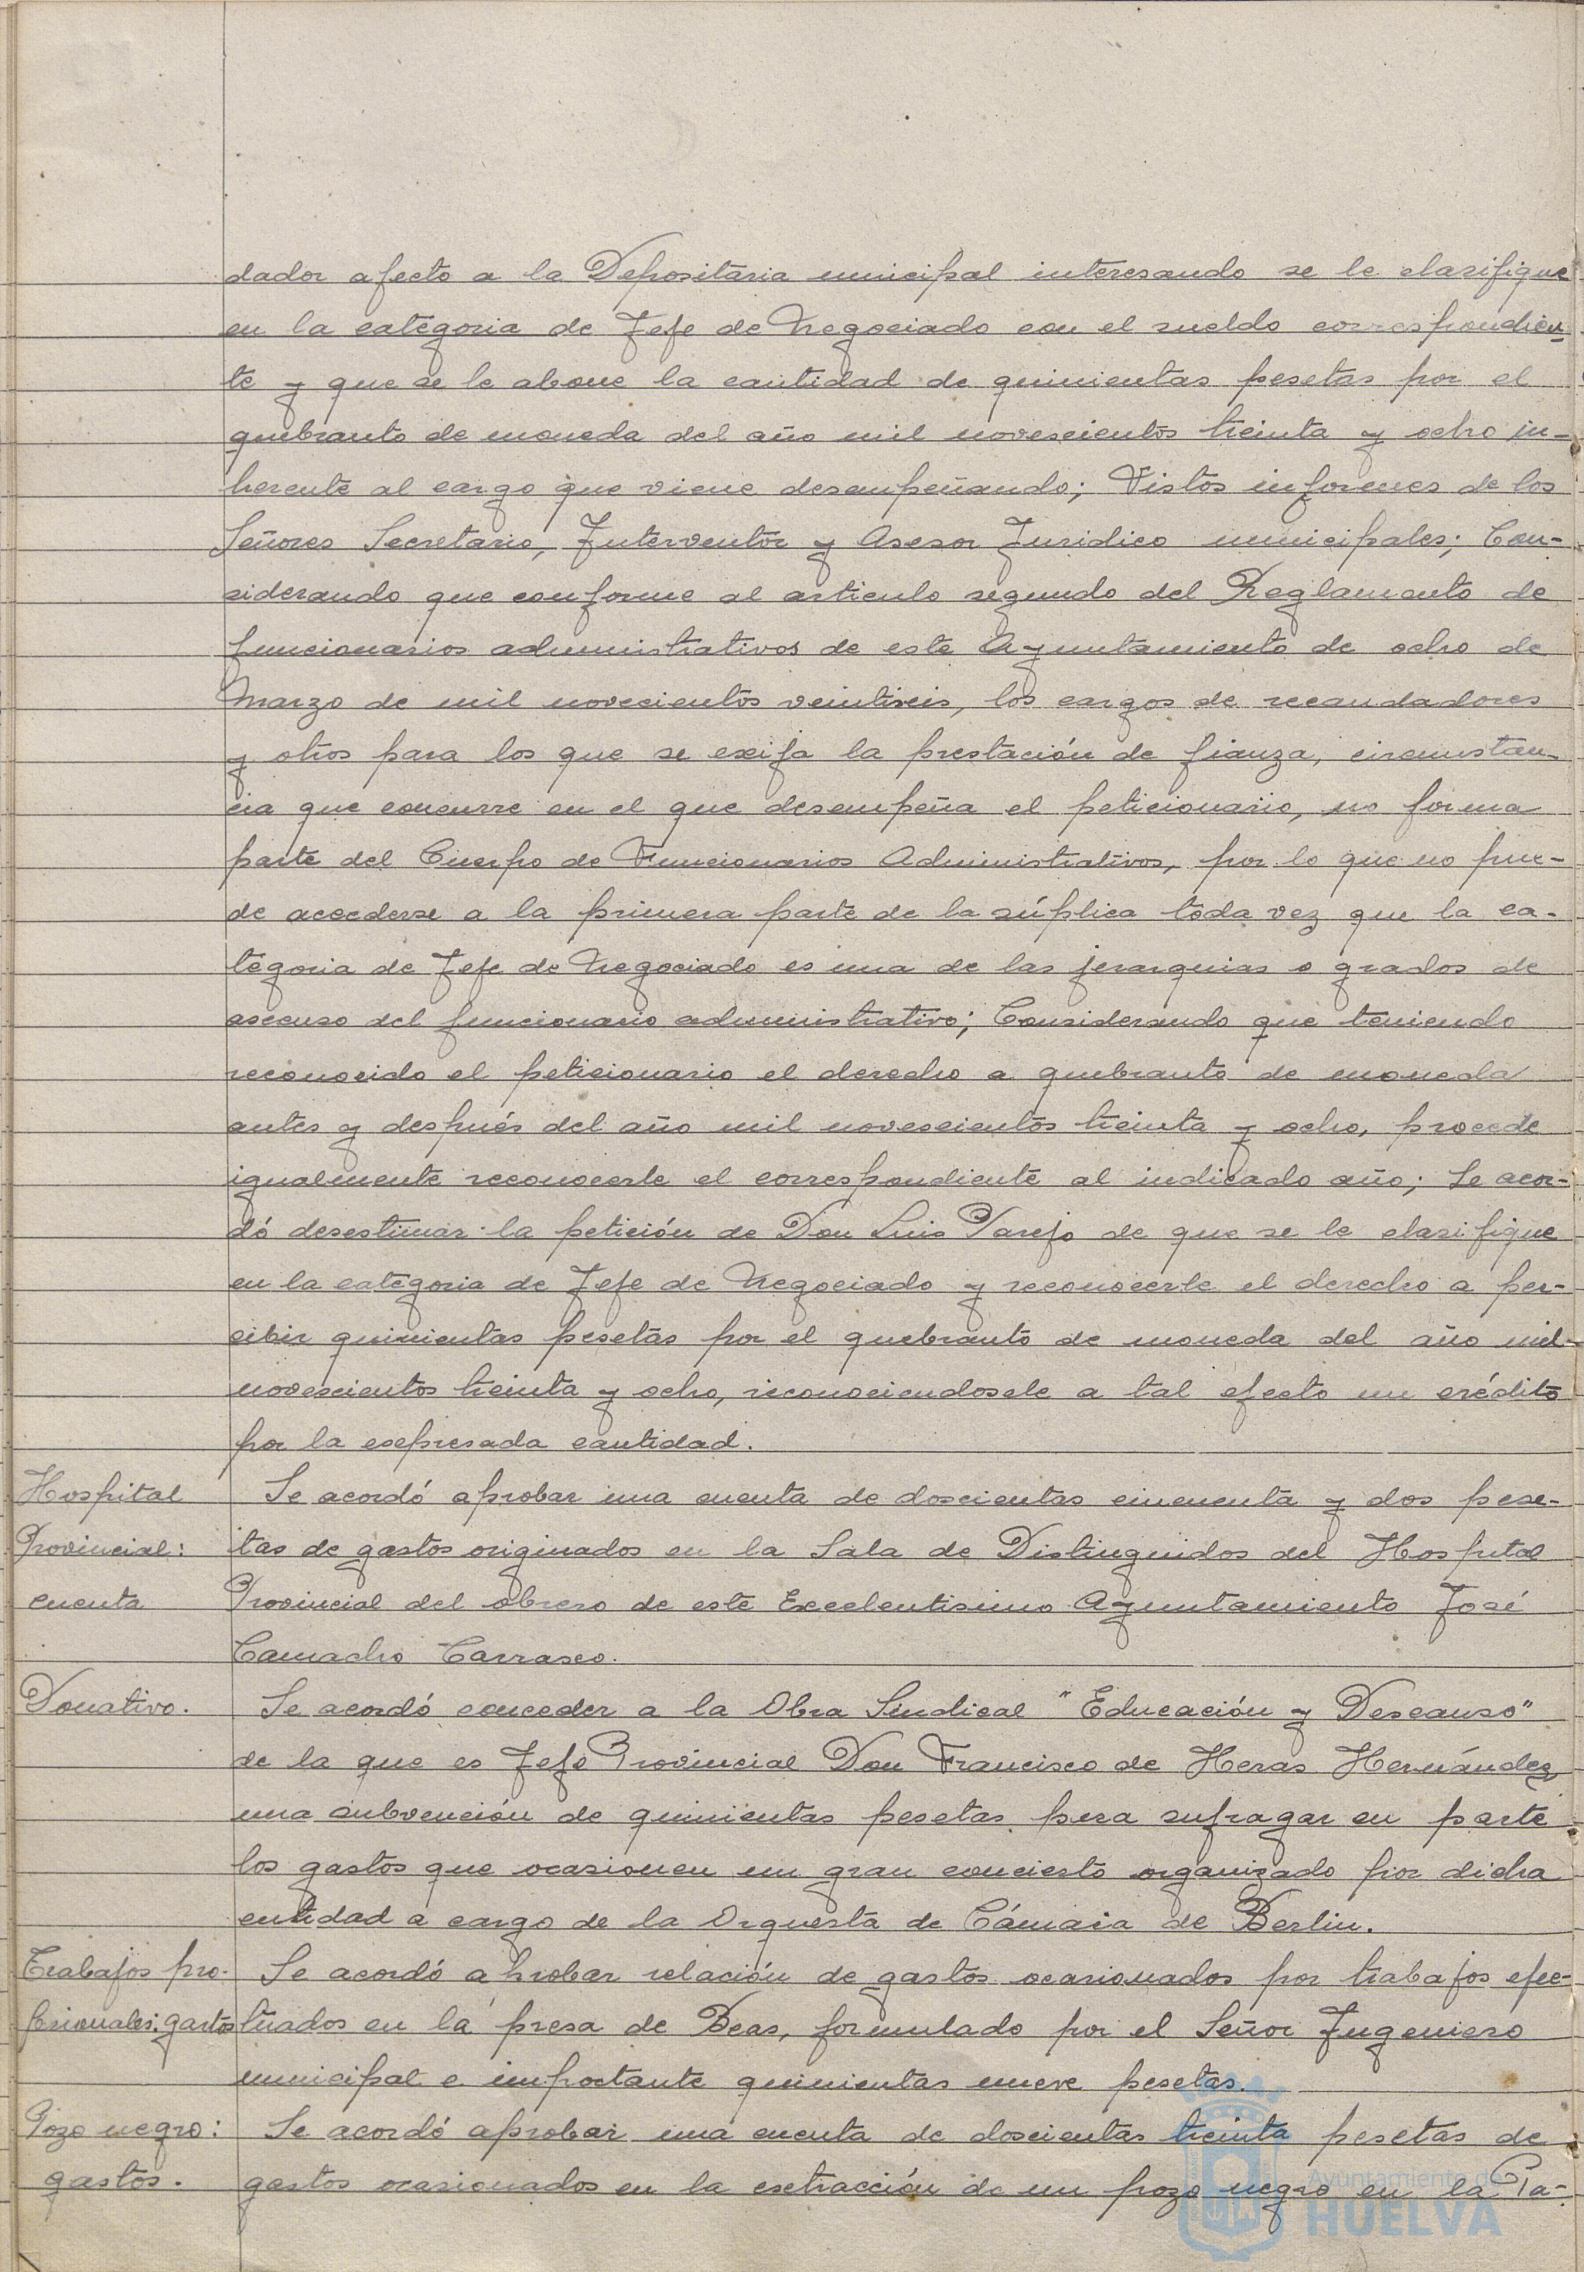 dador afecto a la Depositaria municipal interesando se le clasifique
en la categoria de Jefe de Negociado con el sueldo correspondien-
te y que se le abone la cantidad de quinientas pesetas por el
quebranto de moneda del año mil novescientos treinta y ocho in-
herente al cargo que viene desempeñando; Vistos informes de los
Señores Secretario, Interventor y Asesor Juridico municipales; Con-
siderando que conforme al articulo segundo del Reglamento de
funcionarios administrativos de este Ayuntamiento de ocho de
Marzo de mil novecientos veintiseis, los cargos de recaudadores
y otros para los que se exija la prestación de fianza, circunstan-
cia que concurre en el que desempeña el peticionario, no forma
parte del Cuerpo de Funcionarios Administrativos, por lo que no pue-
de accederse a la primera parte de la súplica toda vez que la ca-
tegoria de Jefe de Negociado es una de las jerarquias o grados de
ascenso del funcionario administrativo; Considerando que teniendo
reconocido el peticionario el derecho a quebranto de moneda
antes y después del año mil novescientos treinta y ocho, procede
igualmente reconocerle el correspondiente al indicado año; Se acor-
dó desestimar la petición de Don Luis Parejo de que se le clasifique
en la categoria de Jefe de Negociado y reconocerle el derecho a per-
cibir quinientas pesetas por el quebranto de moneda del año mil
novescientos treinta y ocho, reconociendosele a tal efecto un crédito
por la expresada cantidad.
Hospital Se acordó aprobar una cuenta de doscientas cincuenta y dos pese-
Provincial: tas de gastos originados en la Sala de Distinguidos del Hospital
cuenta Provincial del obrero de este Excelentisimo Ayuntamiento José
Camacho Carrasco.
Donativo. Se acordó conceder a la Obra Sindical "Educación y Descanso"
de la que es Jefe Provincial Don Francisco de Heras Hernández,
una subvención de quinientas pesetas para sufragar en parte
los gastos que ocasionen un gran concierto organizado por dicha
entidad a cargo de la Orquesta de Cámara de Berlin.
Trabajos pro- Se acordó aprobar relación de gastos ocasionados por trabajos efec-
fesionales: gastos tuados en la presa de Beas, formulado por el Señor Ingeniero
municipal e importante quinientas nueve pesetas.
Pozo negro: Se acordó aprobar una cuenta de doscientas treinta pesetas de
gastos. gastos ocasionados en la extracción de un pozo negro en la Pa-
Ayuntamiento de
HUELVA